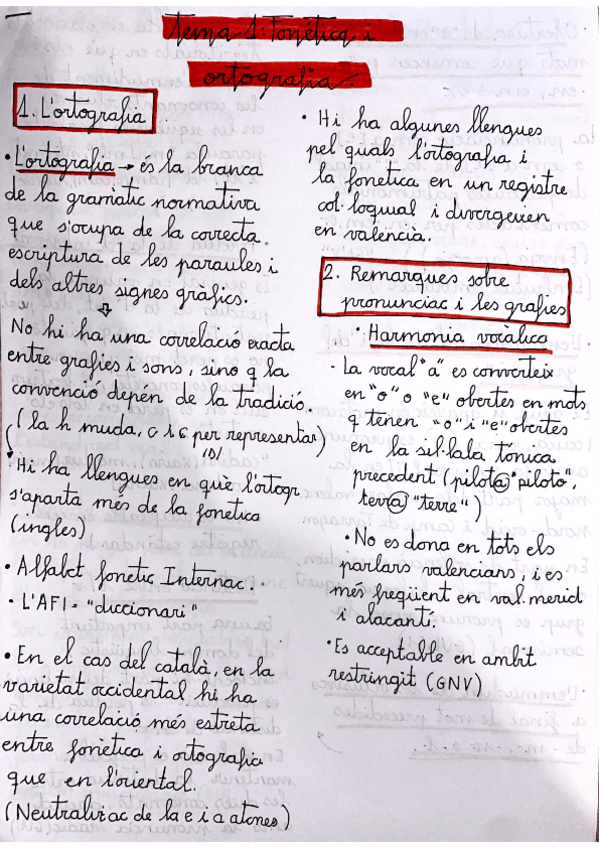 Tema 1: Fonètica i
ortografia.
1. L'ortografia
• L'ortografia → és la branca
de la gramàtic normativa
que s'ocupa de la correcta
escriptura de les paraules i
dels altres signes gràfics.
No hi ha una correlació exacta
entre grafies i sons, sino q la
convenció depén de la tradició.
(la h muda, c i ç per representar)
/s/
Hi ha llengues en què l'ortogr.
s'aparta més de la fonetica
(ingles)
• Alfabet fonètic Internac.
• L'AFI = "diccionari"
• En el cas del català, en la
varietat occidental hi ha
una correlació més estreta
entre fonètica i ortografia
que en l'oriental.
(Neutralizac de la e i a atones)
• Hi ha algunes llengues
pel quals l'ortografia i
la fonetica en un registre
col·loqual i divergeixen
en valencià.
2. Remarques sobre
pronunciac i les grafies
• Harmonia vocàlica
• La vocal "a" es converteix
en "o" o "e" obertes en mots
q tenen "o" i "e" obertes
en la síl·laba tónica
precedent (pilota "piloto",
terra "terre")
• No es dona en tots els
parlars valencians, i es
més freqüent en val. merid
i alacantí.
• Es acceptable en ambit
restringit (GNV)